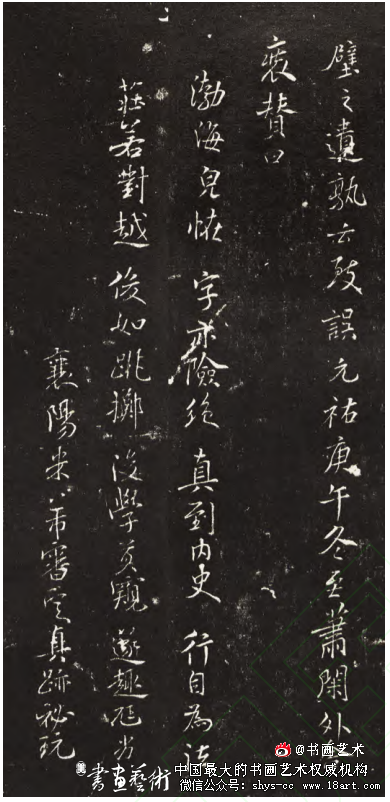 璧之遺孰云誤元祐庚午冬至蕭閑外
贊曰
渤海皃恠 字亦險絕 真到內史 行自為法
莊若對越 俊如跳擲 後學莫窺 遂趣尫劣
襄陽米芾審定真跡秘玩
@书画艺术
書畫藝術 中国最大的书画艺术权威机构
微信公众号：shys-cc www.18art.com